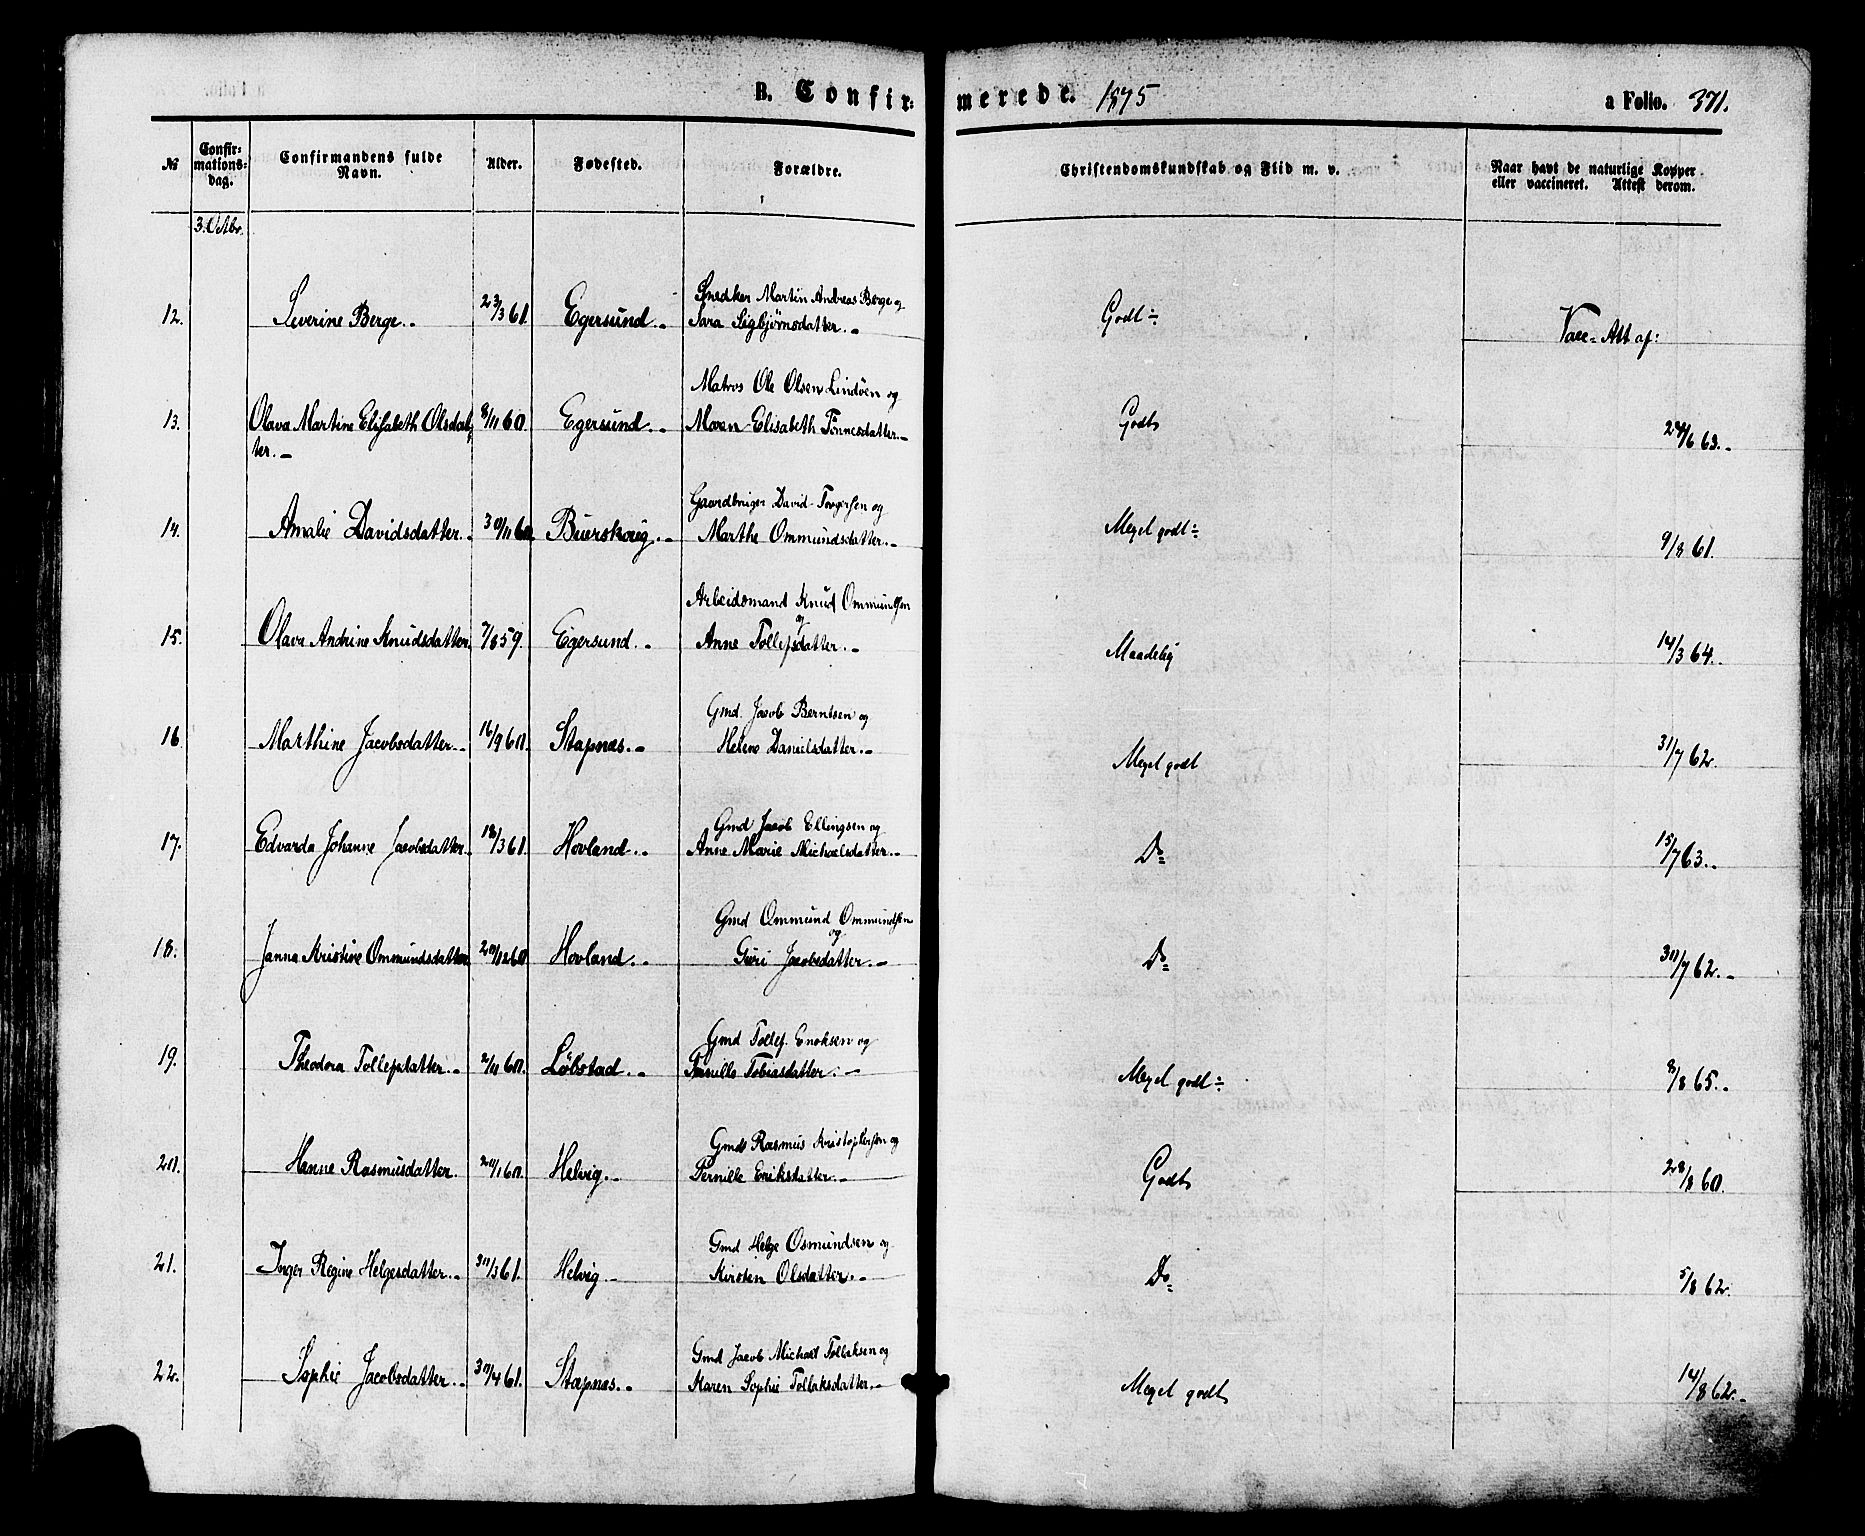 B. Confirmerede. 1875 a Folio. 371.
№ Confirmations-dag. Confirmandens fulde Navn. Alder. Fødested. Forældre. Christendomskundskab og Flid m. v. Naar havt de naturlige Kopper eller vaccineret. Attest derom.
3. Octbr.
Snedker Martin Andreas Berge og
12. Severine Berge.. 23/3 61. Egersund.. Sara Sigbjørnsdatter.. Godt ÷ Vacc= Att af:
Matros Ole Olsen Lindöen og
13. Olava Martine Elisabeth Olsdat- 8/11 60. Egersund.. Maren Elisabeth Tönnesdatter.. Godt 24/6 63..
ter..
Gaardbruger David Torgersen og
14. Amalie Davidsdatter.. 30/11 60. Buerskoug.. Marthe Ommundsdatter.. Meget godt ÷ 9/8 61.
Arbeidsmand Knud Ommundsen
og
15. Olava Andrine Knudsdatter. 7/8 59. Egersund.. Anne Tollefsdatter.. Maadelig 14/3 64..
Gmd. Jacob Berntsen og
16. Marthine Jacobsdatter.. 16/9 60. Stapnæs.. Helene Danielsdatter.. Meget godt 31/7 62.
Gmd Jacob Ellingsen og
17. Edvarda Johanne Jacobsdatter.. 18/3 61. Hovland.. Anne Marie Michaelsdatter.. Do 15/7 63..
Gmd Ommund Ommundsen
og
18. Janna Kristine Ommundsdatter 20/12 60 Hovland.. Guri Jacobsdatter.. Do 30/7 62..
Gmd Tollef Enoksen og
19. Theodora Tollefsdatter.. 2/11 60. Löbstad.. Pernille Tobiasdatter.. Meget godt ÷ 8/8 65..
Gmd Rasmus Kristophersen og
20. Hanne Rasmusdatter. 20/1 60. Helvig.. Pernille Eriksdatter.. Godt 28/8 60.
Gmd Helge Osmundsen og
21. Inger Regine Helgesdatter.. 30/3 61. Helvig.. Kirsten Olsdatter.. Do 5/8 62.
Gmd Jacob Michael Tollaksen og
22. Sophie Jacobsdatter.. 30/4 61. Stapnæs.. Karen Sophie Tollaksdatter.. Meget godt 14/8 62..